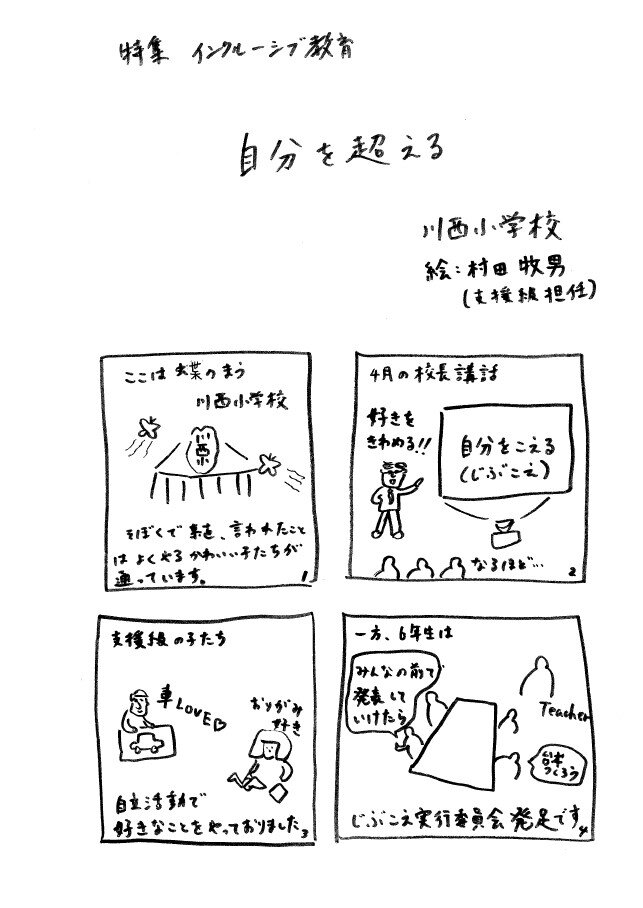 特集 インクルーシブ教育
自分を超える
川西小学校
絵:村田牧男
(支援級担任)
ここは 蝶のまう
川西小学校
川西
そぼくで 純、言われたこと
は よくやる かわいい子たちが
通っています。
1
4月の校長講話
好きを
きわめる!!
自分をこえる
(じぶこえ)
なるほど…
2
支援級の子たち
車LOVE♡
おりがみ
好き
自立活動で
好きなことを やっておりました
3
一方、6年生は
みんなの前で
発表して
いけたら
Teacher
台本
つくろう
じぶこえ実行委員会 発足です
4